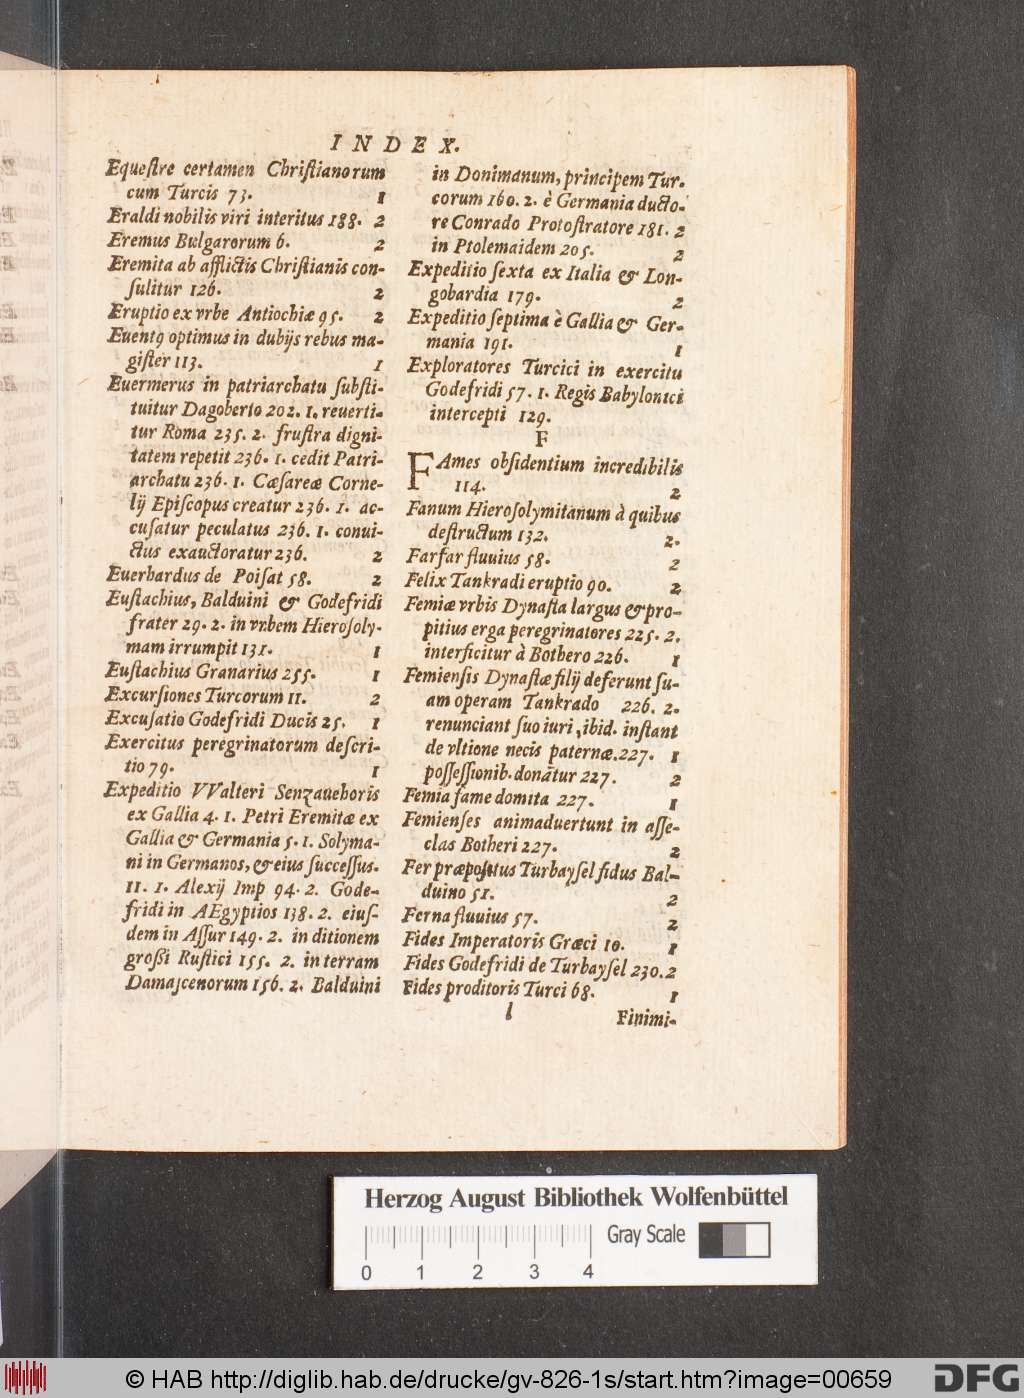 INDEX.
Equeſtre certamen Chriſtianorum
cum Turcis 73. 1
Eraldi nobilis viri interitus 188. 2
Eremus Bulgarorum 6. 2
Eremita ab afflictis Chriſtianis con-
ſulitur 126. 2
Eruptio ex vrbe Antiochiæ 95. 2
Euentꝰ optimus in dubijs rebus ma-
giſter 113. 1
Euermerus in patriarchatu ſubſti-
tuitur Dagoberto 202. 1. reuerti-
tur Roma 235. 2. fruſtra digni-
tatem repetit 236. 1. cedit Patri-
archatu 236. 1. Cæſareæ Corne-
lij Epiſcopus creatur 236. 1. ac-
cuſatur peculatus 236. 1. conui-
ctus exauctoratur 236. 2
Euerhardus de Poiſat 58. 2
Euſtachius, Balduini & Godefridi
frater 29. 2. in vrbem Hieroſoly-
mam irrumpit 131. 1
Euſtachius Granarius 255. 1
Excurſiones Turcorum 11. 2
Excuſatio Godefridi Ducis 25. 1
Exercitus peregrinatorum deſcri-
tio 79. 1
Expeditio VValteri Senzauehoris
ex Gallia 4. 1. Petri Eremitæ ex
Gallia & Germania 5. 1. Solyma-
ni in Germanos, & eius ſucceſſus.
11. 1. Alexij Imp 94. 2. Gode-
fridi in AEgyptios 138. 2. eiuſ-
dem in Aſſur 149. 2. in ditionem
groſsi Ruſtici 155. 2. in terram
Damaſcenorum 156. 2. Balduini
in Donimanum, principem Tur-
corum 160. 2. è Germania ducto-
re Conrado Protoſtratore 181. 2
in Ptolemaidem 205. 2
Expeditio ſexta ex Italia & Lon-
gobardia 179. 2
Expeditio ſeptima è Gallia & Ger-
mania 191. 1
Exploratores Turcici in exercitu
Godefridi 57. 1. Regis Babylonici
intercepti 129.
F
FAmes obſidentium incredibilis
114. 2
Fanum Hieroſolymitanum à quibus
deſtructum 132. 2.
Farfar fluuius 58. 2
Felix Tankradi eruptio 90. 2
Femiæ vrbis Dynaſta largus & pro-
pitius erga peregrinatores 225. 2.
interficitur à Bothero 226. 1
Femienſis Dynaſtæ filij deferunt ſu-
am operam Tankrado 226. 2.
renunciant ſuo iuri, ibid. inſtant
de vltione necis paternæ. 227. 1
poſſeſſionib. donātur 227. 2
Femia fame domita 227. 1
Femienſes animaduertunt in aſſe-
clas Botheri 227. 2
Fer præpoſitus Turbayſel fidus Bal-
duino 51. 2
Ferna fluuius 57. 2
Fides Imperatoris Græci 10. 1
Fides Godefridi de Turbayſel 230. 2
Fides proditoris Turci 68. 1
l Finimi-
Herzog August Bibliothek Wolfenbüttel
Gray Scale
0 1 2 3 4
© HAB http://diglib.hab.de/drucke/gv-826-1s/start.htm?image=00659
DFG